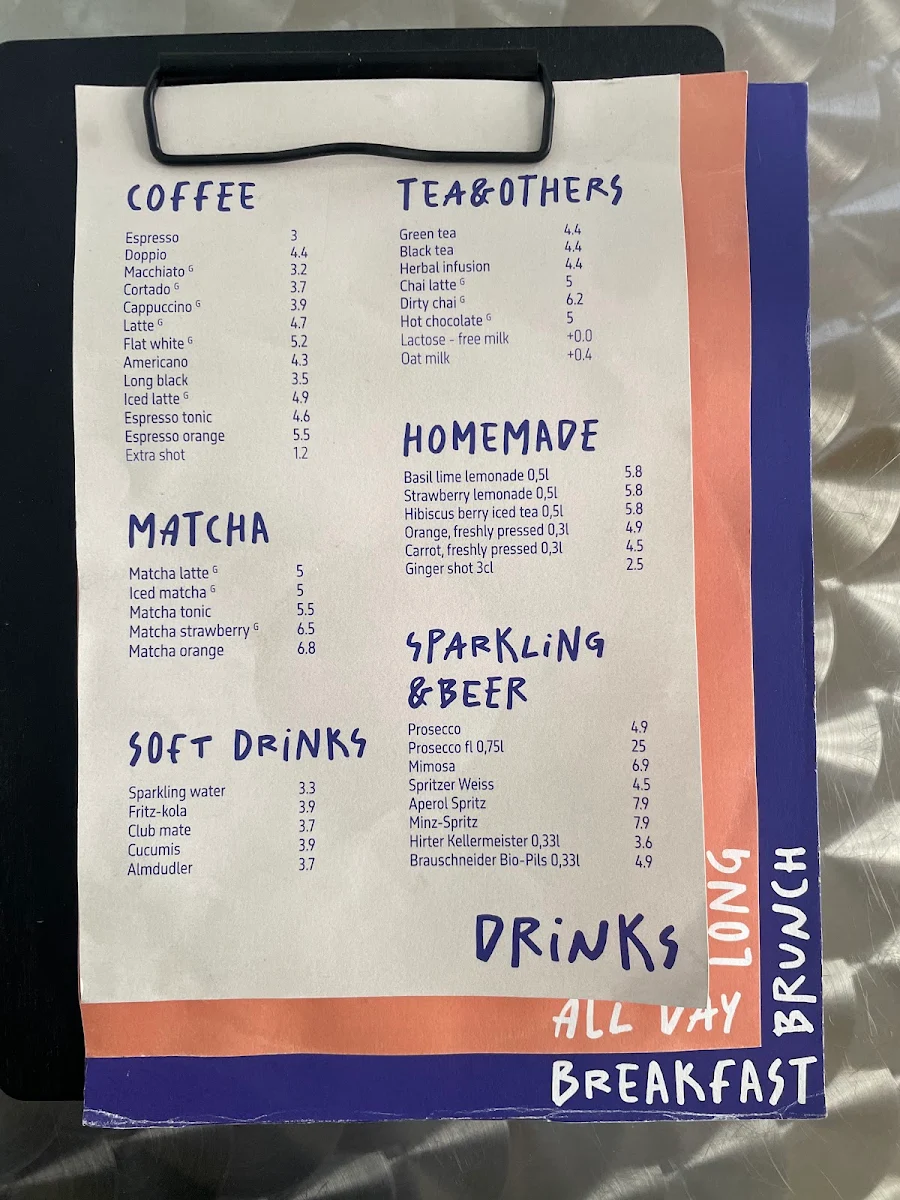 COFFEE
Espresso 3
Doppio 4.4
Macchiato ᴳ 3.2
Cortado ᴳ 3.7
Cappuccino ᴳ 3.9
Latte ᴳ 4.7
Flat white ᴳ 5.2
Americano 4.3
Long black 3.5
Iced latte ᴳ 4.9
Espresso tonic 4.6
Espresso orange 5.5
Extra shot 1.2
MATCHA
Matcha latte ᴳ 5
Iced matcha ᴳ 5
Matcha tonic 5.5
Matcha strawberry ᴳ 6.5
Matcha orange 6.8
SOFT DRiNKS
Sparkling water 3.3
Fritz-kola 3.9
Club mate 3.7
Cucumis 3.9
Almdudler 3.7
TEA&OTHERS
Green tea 4.4
Black tea 4.4
Herbal infusion 4.4
Chai latte ᴳ 5
Dirty chai ᴳ 6.2
Hot chocolate ᴳ 5
Lactose - free milk +0.0
Oat milk +0.4
HOMEMADE
Basil lime lemonade 0,5l 5.8
Strawberry lemonade 0,5l 5.8
Hibiscus berry iced tea 0,5l 5.8
Orange, freshly pressed 0,3l 4.9
Carrot, freshly pressed 0,3l 4.5
Ginger shot 3cl 2.5
SPARKLiNG
&BEER
Prosecco 4.9
Prosecco fl 0,75l 25
Mimosa 6.9
Spritzer Weiss 4.5
Aperol Spritz 7.9
Minz-Spritz 7.9
Hirter Kellermeister 0,33l 3.6
Brauschneider Bio-Pils 0,33l 4.9
DRiNKS
ALL DAY
LONG
BREAKFAST
BRUNCH